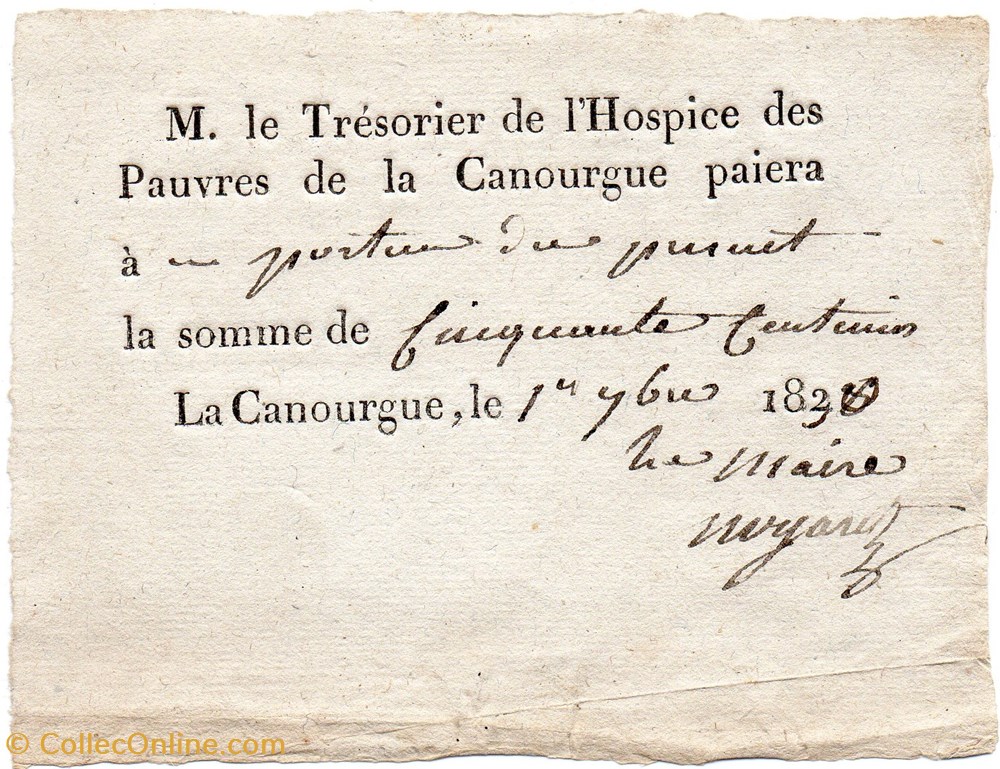 M. le Trésorier de l'Hospice des
Pauvres de la Canourgue paiera
à porteur du
la somme de Cinquante Centimes
La Canourgue, le 1er 7bre 183
Le maire
© CollecOnline.com